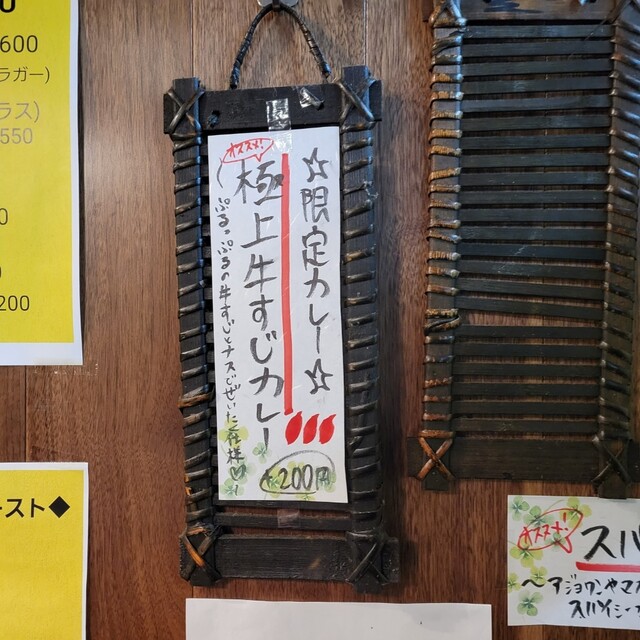 ☆限定カレー☆
オススメ!
極上牛すじカレー
ぷるっぷるの牛すじとナスでぜいたく仕様♡
+200円
600
ラガー)
ラス)
550
0
200
ースト◆
オススメ!
スパ
～アジョワンやマ
スパイシー